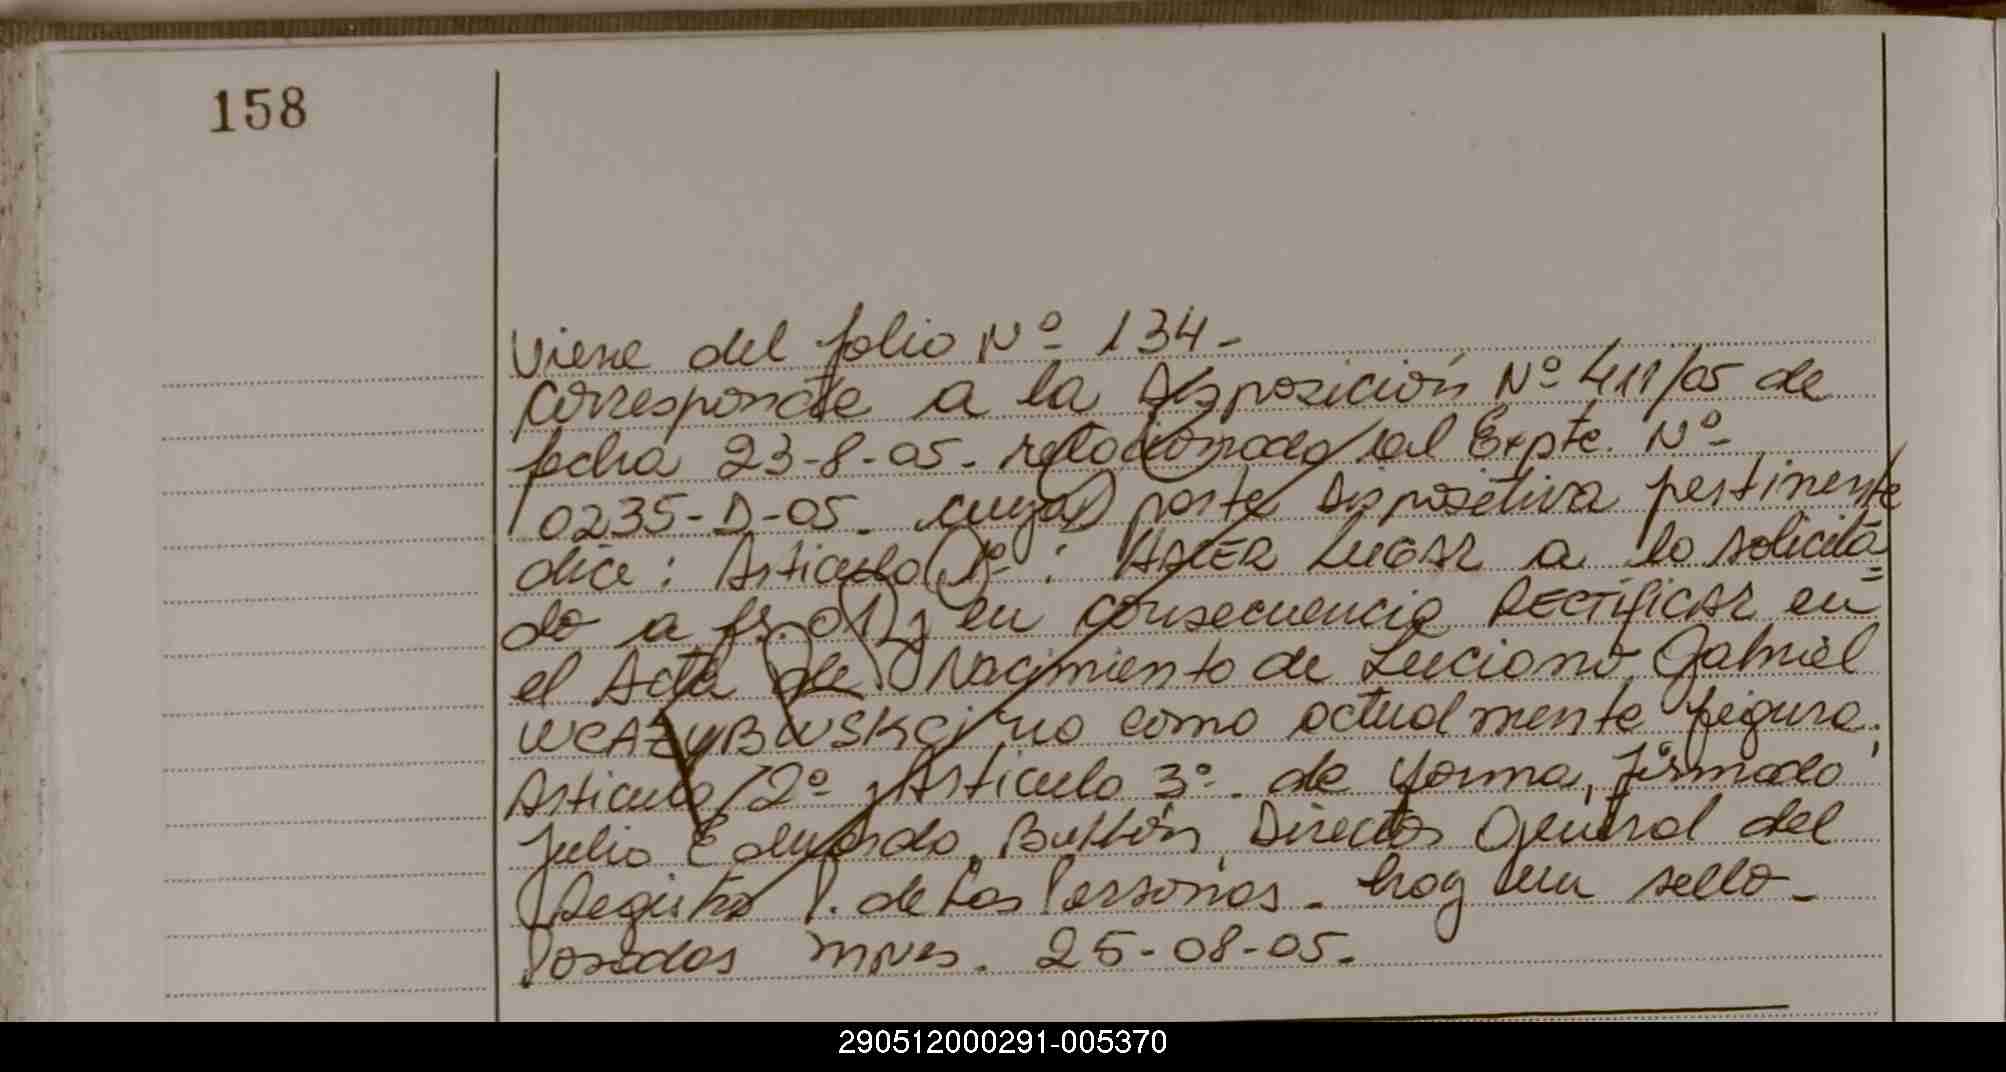 158
Viene del folio Nº 134-
corresponde a la Disposición Nº 411/05 de
fecha 23-8-05. relacionado al Expte. Nº
0235-D-05. cuya parte Dispositiva pertinente
dice: Articulo 1º: HACER LUGAR a lo solicita
do a fs. 01, en consecuencia RECTIFICAR en
el Acta de Nacimiento de Luciano Gabriel
no como actualmente figura.
Articulo 2º Articulo 3º de forma, firmado
Julio Eduardo Director General del
Registro P. de Las Personas. hay un sello-
Posadas Mnes. 25-08-05.
290512000291-005370